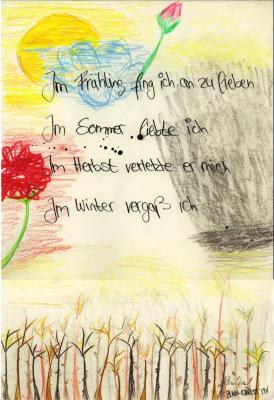 Im Frühling fing ich an zu lieben
Im Sommer liebte ich
Im Herbst verletzte er mich
Im Winter vergaß ich